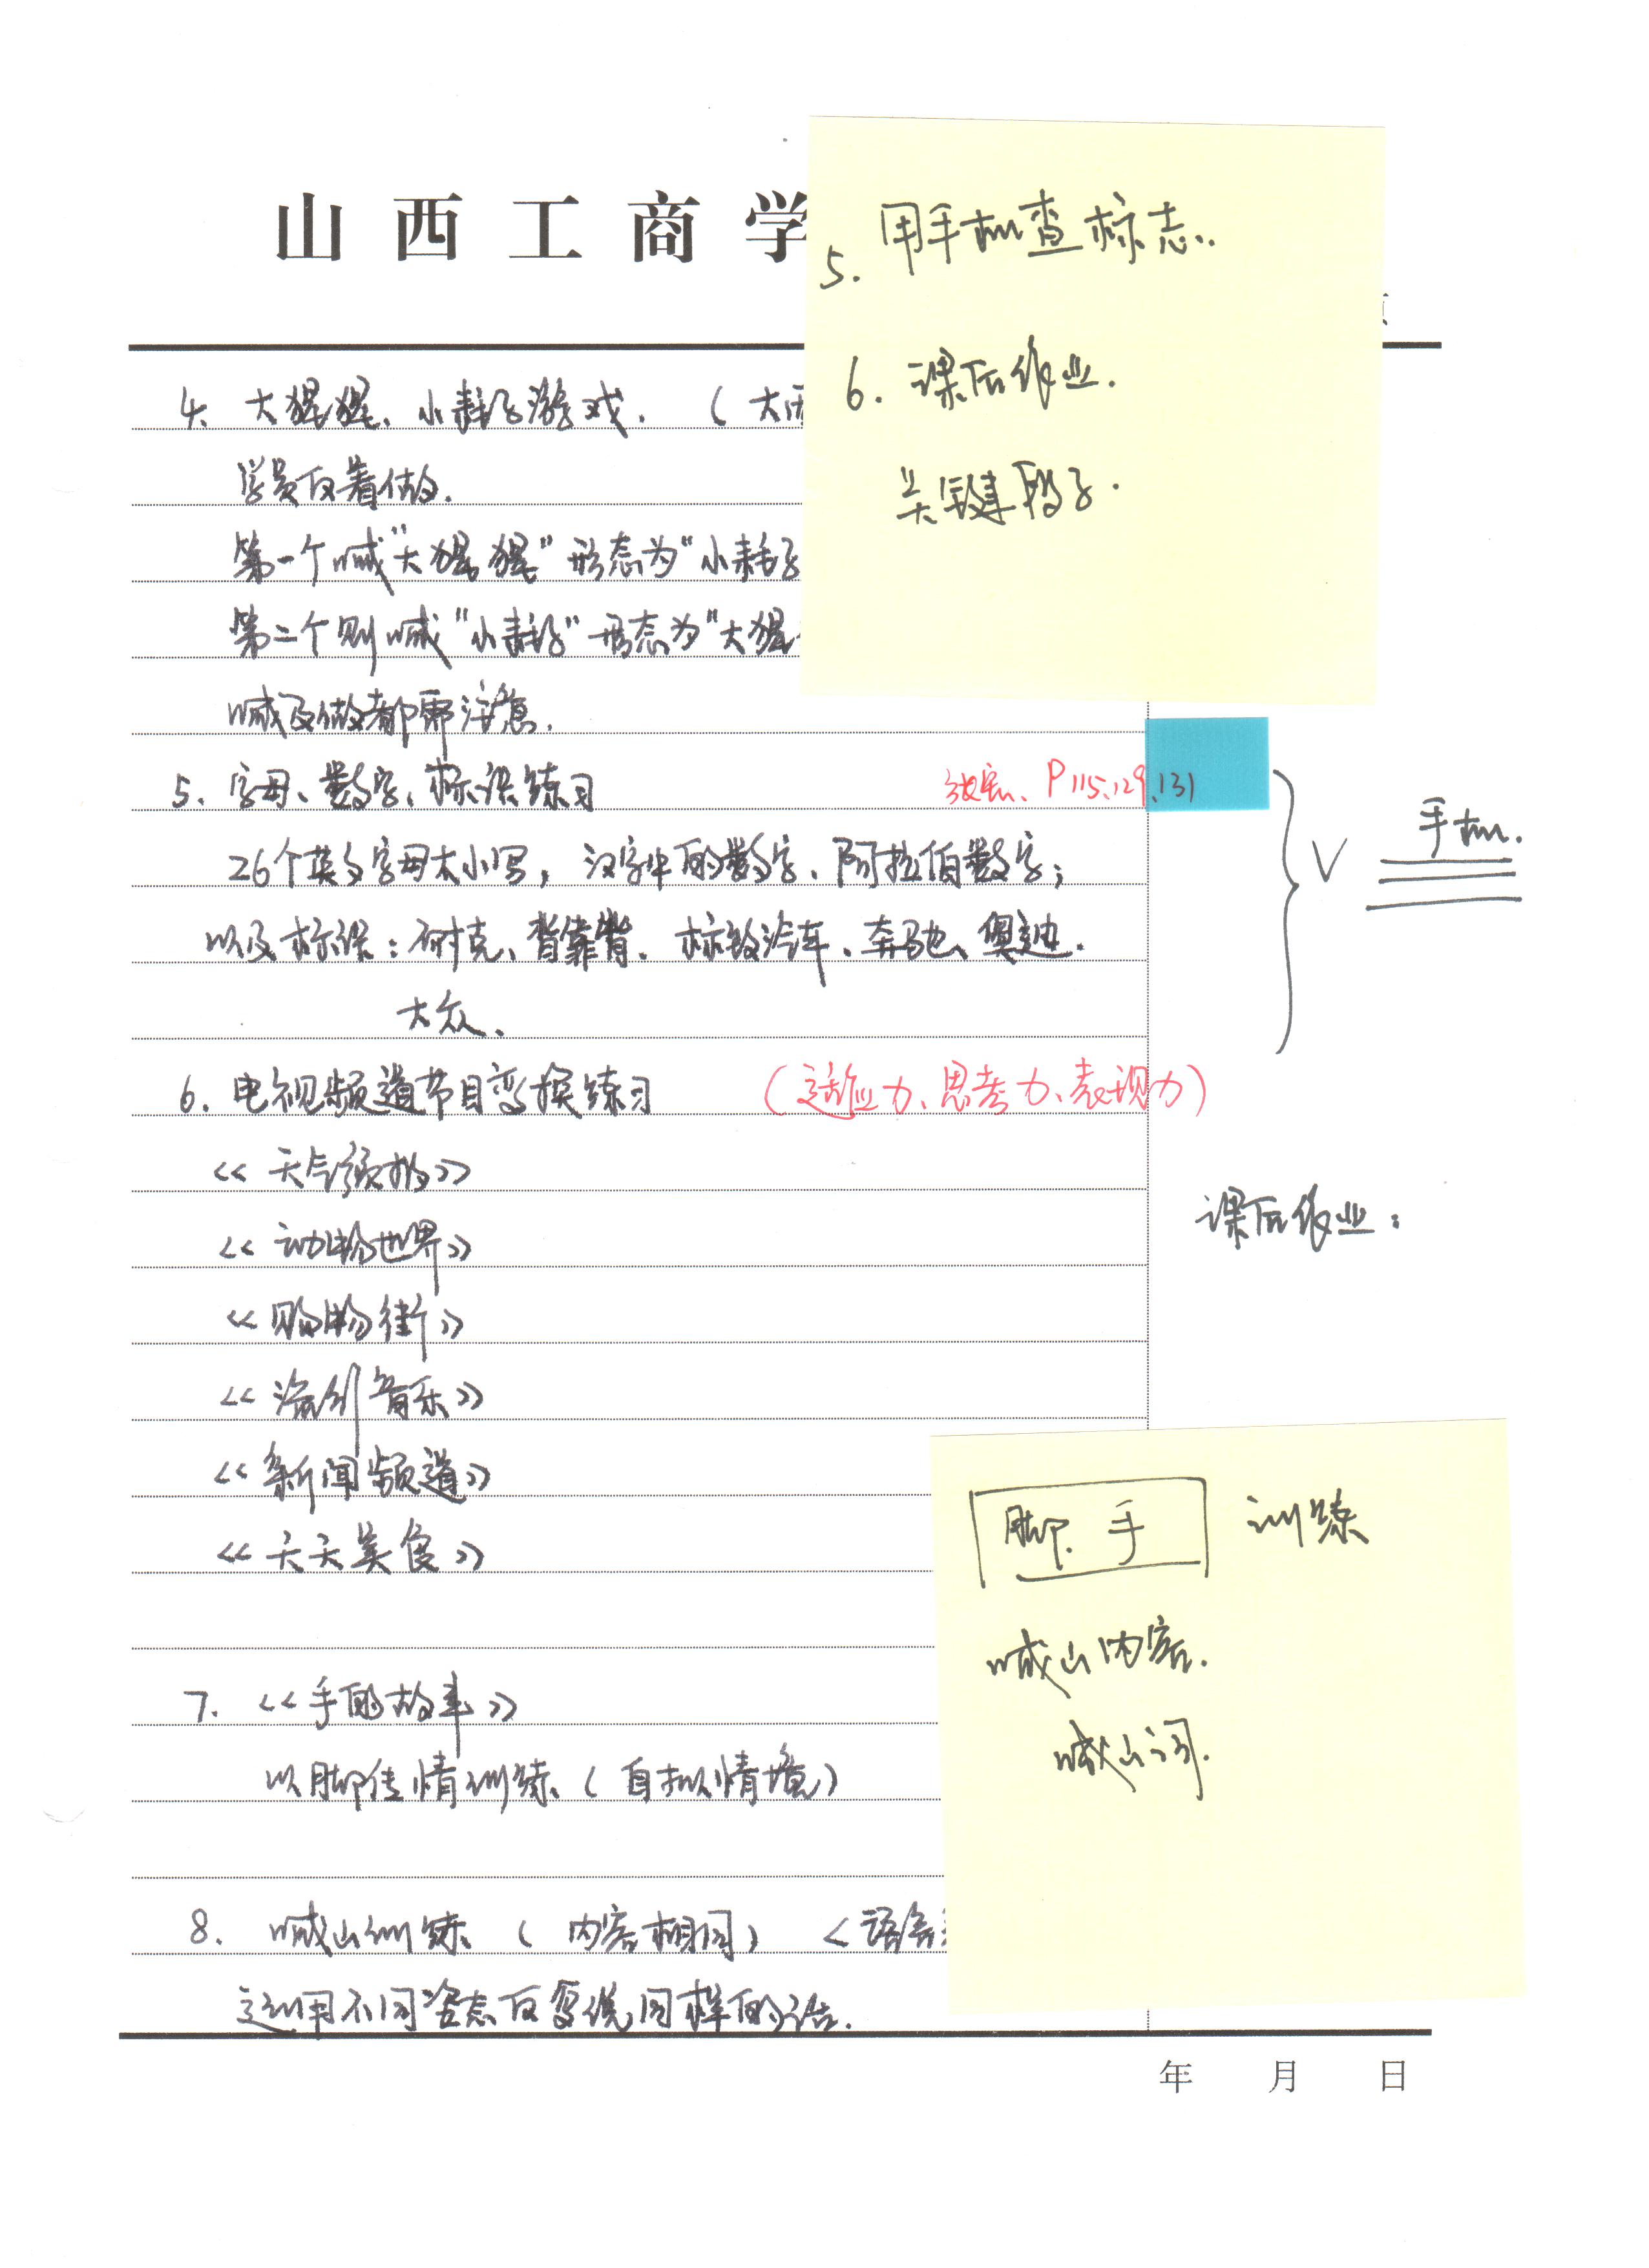 山西工商学
5. 用手机查标志.
6. 课后作业.
关键段子.
4. 大猩猩、小耗子游戏. (大
学员反着做.
第一个喊“大猩猩”形态为“小耗子
第二个则喊“小耗子”形态为“大猩
喊及做都需注意.
5. 字母、数字、标识练习
P115、129、131
手机.
26个英文字母大小写, 汉字中的数字、阿拉伯数字;
以及标识: 耐克、背靠背、标致汽车、奔驰、奥迪.
大众.
6. 电视频道节目变换练习 (适应力、思考力、表现力)
《天气预报》
《动物世界》
课后作业:
《购物街》
《流行音乐》
《新闻频道》
《天天美食》
脚、手 训练
喊山内容.
喊山词.
7. 《手的故事》
以脚传情训练 (自拟情境)
8. 喊山训练 (内容相同) <语言
运用不同姿态反复说同样的话.
年 月 日